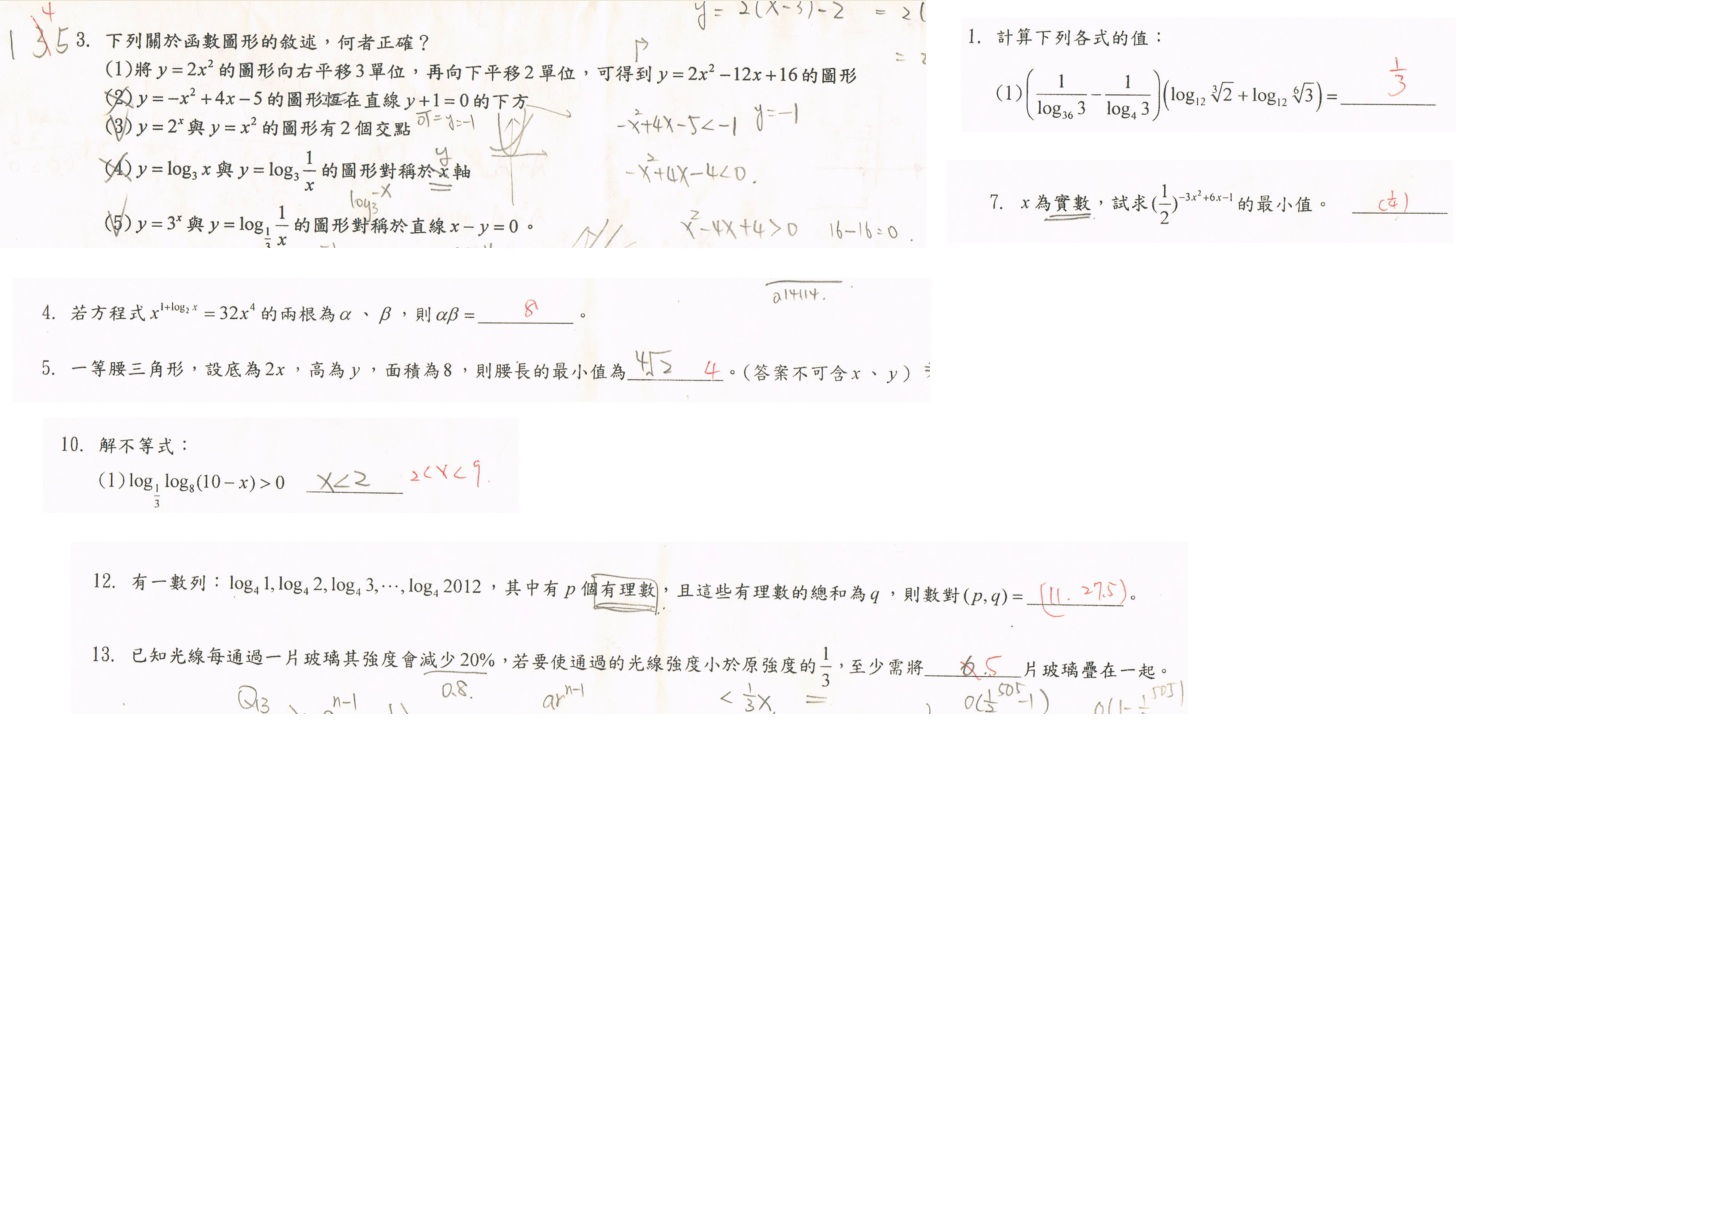 y = 2(x-3)-2 = 2(
4
1 3 5 3. 下列關於函數圖形的敘述，何者正確？
(1)將 y=2x² 的圖形向右平移3單位，再向下平移2單位，可得到 y=2x²-12x+16 的圖形
(2) y=-x²+4x-5 的圖形恆在直線 y+1=0 的下方
y=-1
(3) y=2ˣ 與 y=x² 的圖形有2個交點
-x²+4x-5<-1 y=-1
y
(4) y=log₃ x 與 y=log₃ 1/x 的圖形對稱於 x 軸
-x²+4x-4<0.
log₃-x
(5) y=3ˣ 與 y=log_{1/3} 1/x 的圖形對稱於直線 x-y=0。
x²-4x+4>0 16-16=0.
1. 計算下列各式的值：
(1)(1/log₃₆ 3 - 1/log₄ 3)(log₁₂ ³√2 + log₁₂ ⁶√3)= 1/3
7. x 為實數，試求(1/2)^{-3x²+6x-1} 的最小值。 (1/4)
4. 若方程式 x^{1+log₂ x}=32x⁴ 的兩根為 α、β，則 αβ= 8 。
5. 一等腰三角形，設底為2x，高為 y，面積為8，則腰長的最小值為 4√2 4 。(答案不可含 x、y)
10. 解不等式：
(1) log_{1/3} log₈(10-x)>0 x<2 2<x<9.
12. 有一數列：log₄ 1, log₄ 2, log₄ 3, ⋯, log₄ 2012，其中有 p 個有理數，且這些有理數的總和為 q，則數對(p,q)= (11. 27.5) 。
13. 已知光線每通過一片玻璃其強度會減少20%，若要使通過的光線強度小於原強度的 1/3，至少需將 6.5 片玻璃疊在一起。
0.8. arⁿ⁻¹ < 1/3x =